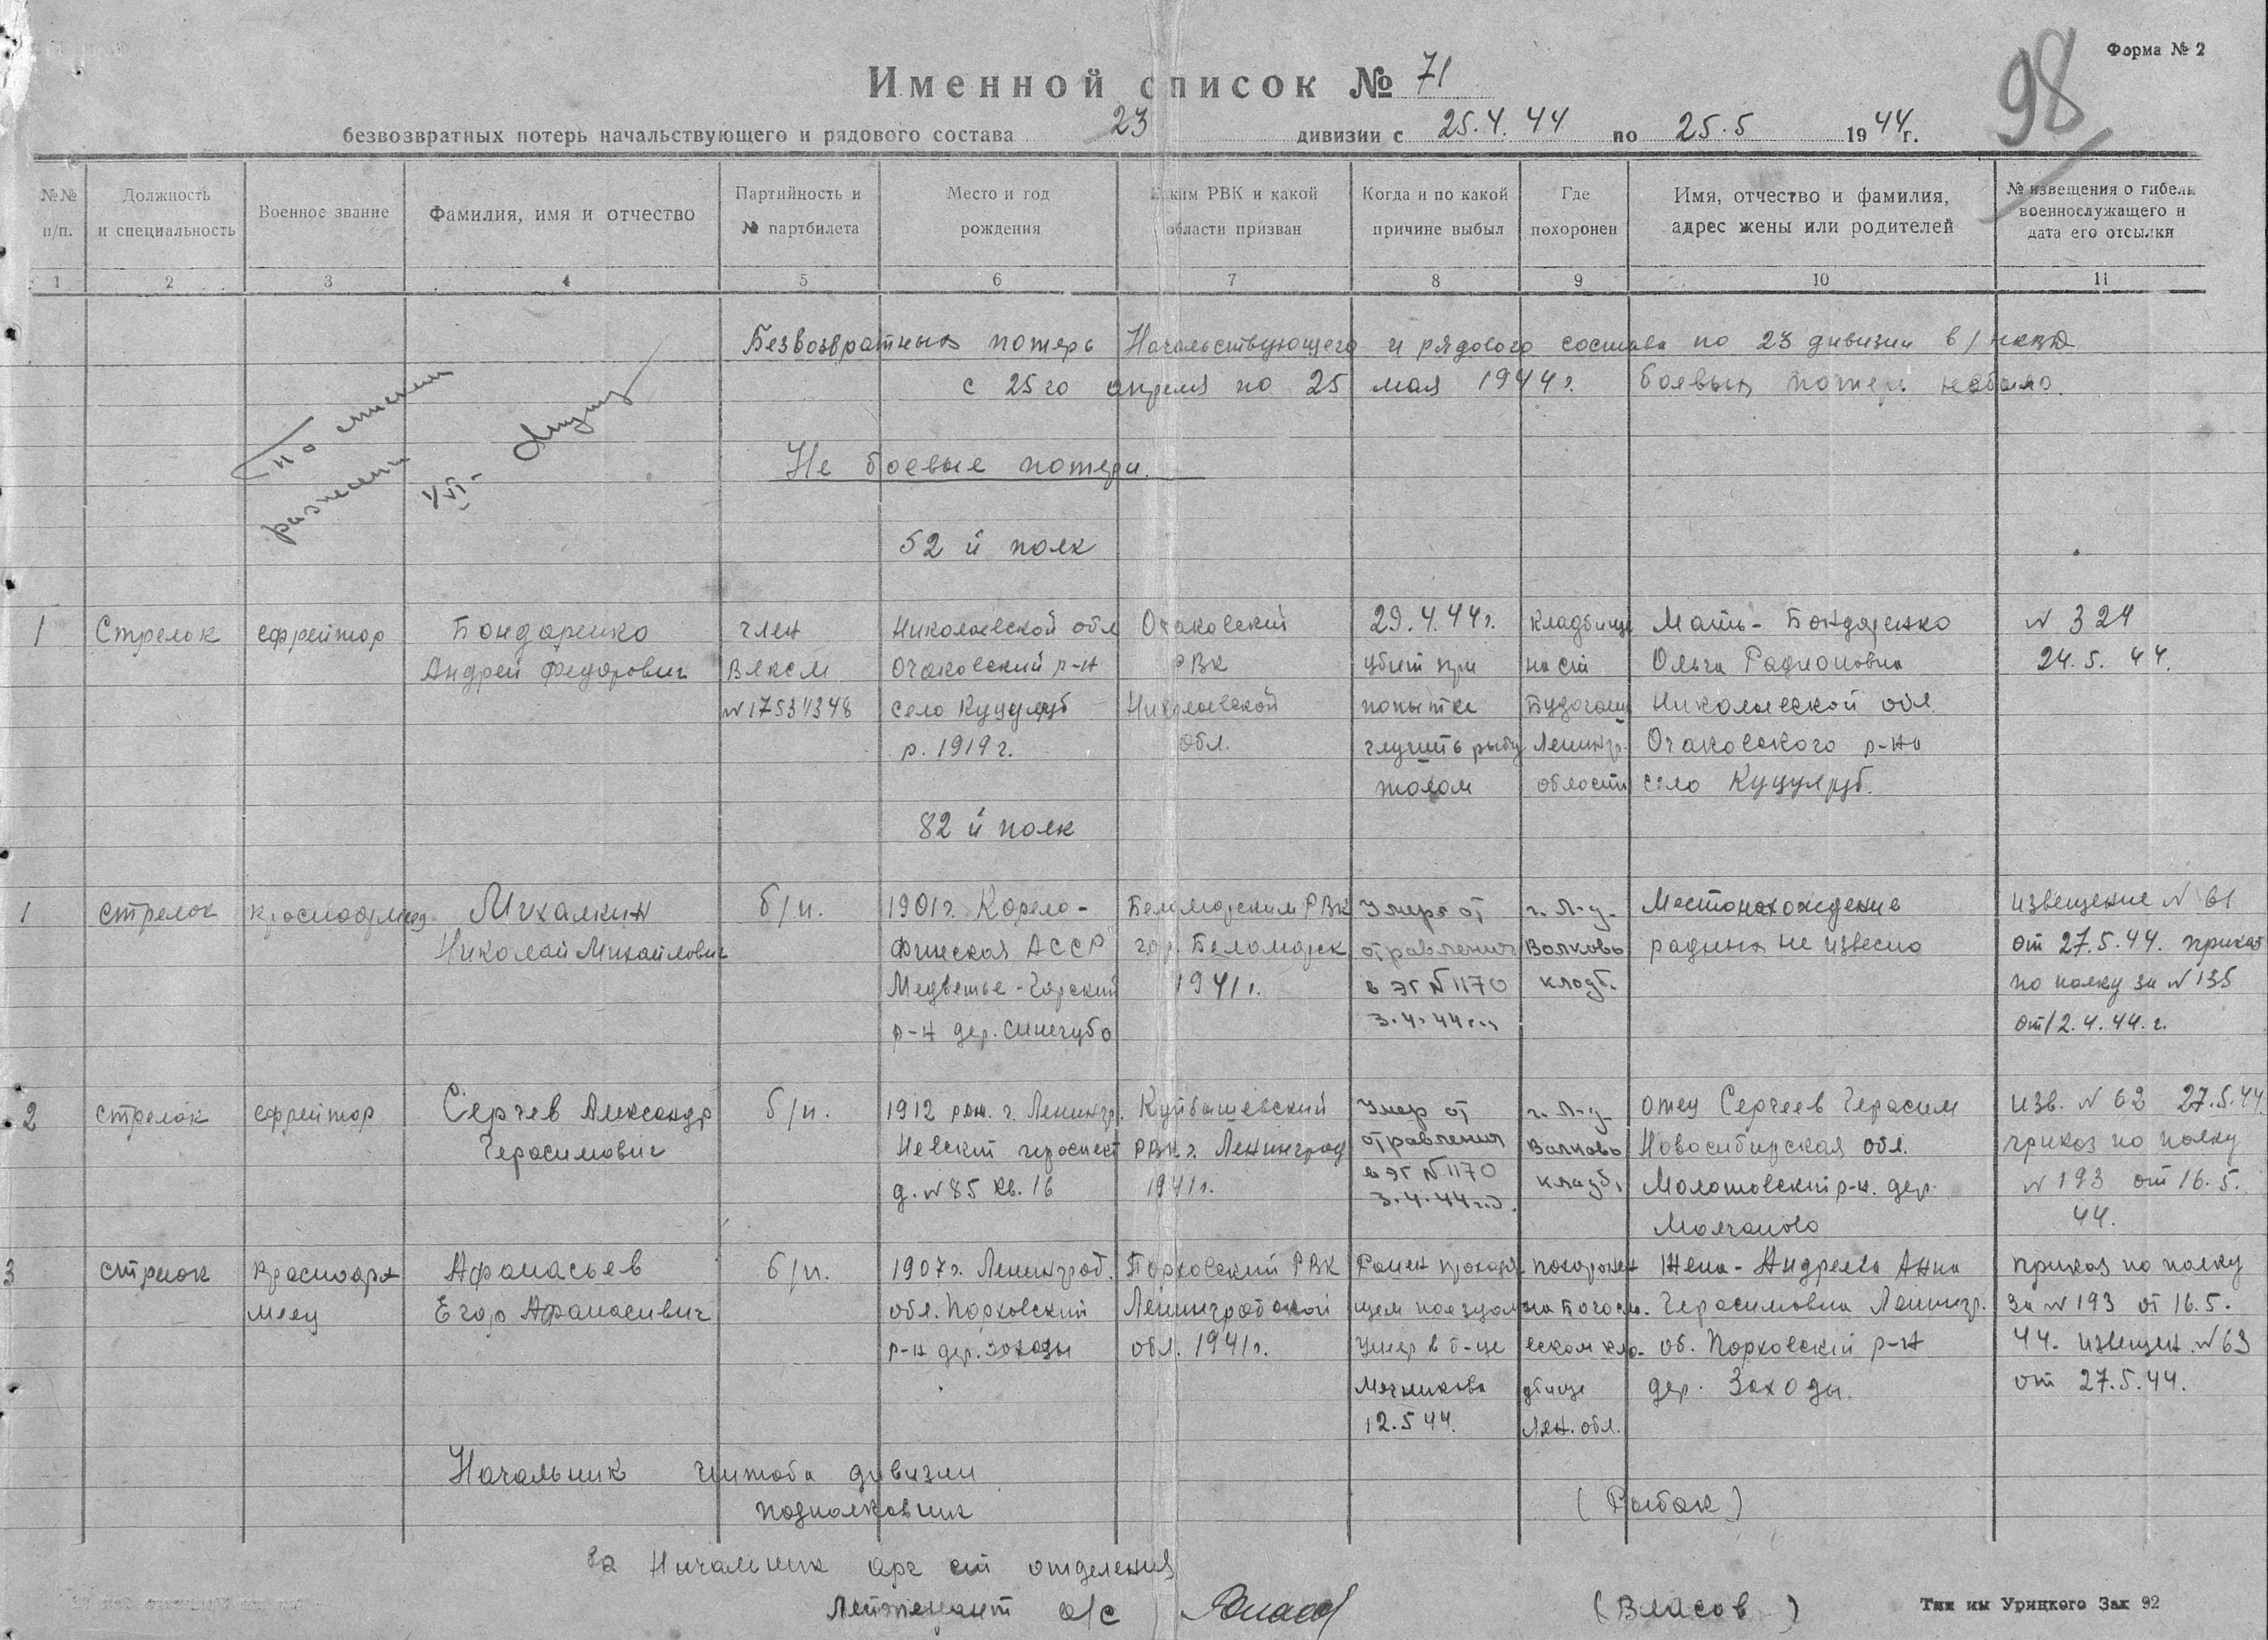 Форма № 2
98
Именной список № 71
безвозвратных потерь начальствующего и рядового состава 23 дивизии с 25.4.44 по 25.5 1944 г.
№№ п/п.
Должность и специальность
Военное звание
Фамилия, имя и отчество
Партийность и № партбилета
Место и год рождения
Каким РВК и какой области призван
Когда и по какой причине выбыл
Где похоронен
Имя, отчество и фамилия, адрес жены или родителей
№ извещения о гибели военнослужащего и дата его отсылки
1 2 3 4 5 6 7 8 9 10 11
Безвозвратных потерь Начальствующего и рядового состава по 23 дивизии в/НКВД
с 25го апреля по 25 мая 1944 г. боевых потерь небыло.
По спискам
разнесены
1/VI-
Не боевые потери.
52 й полк
1
Стрелок
ефрейтор
Бондаренко
Андрей Федорович
член
ВЛКСМ
№17534348
Николаевской обл
Очаковский р-н
село Куцуруб
р. 1919 г.
Очаковский
РВК
Николаевской
обл.
29.4.44г.
убит при
попытке
глушить рыбу
толом
кладбище
на ст
Будогощь
Ленингр.
области
Мать- Бондаренко
Ольга Радионовна
Николаевской обл.
Очаковского р-на
село Куцулруб.
№ 324
24.5.44.
82 й полк
1
стрелок
красноармеец
Михалкин
Николай Михайлович
б/п.
1901г. Карело-
Финская АССР
Медвежье-Горский
р-н дер. Синегубо
Беломорским РВК
гор. Беломорск
1941г.
Умер от
отравления
в ЭГ №1170
3.4.44г.
г. Л-д-
Волково
кладб.
Местонахождение
родины не извесно
извещение № 61
от 27.5.44. приказ
по полку за № 135
от 12.4.44.г.
2
стрелок
ефрейтор
Сергев Александр
Герасимович
б/п.
1912 рож. г. Ленингр.
Невский проспект
д. №85 кв. 16
Куйбышевский
РВК г. Ленинград
1941г.
Умер от
отравления
в ЭГ №1170
3.4.44г.
г. Л-д-
Волково
кладб.
отец Сергеев Герасим
Новосибирская обл.
Молотовский р-н. дер.
Молчаново
изв. № 62 27.5.44
приказ по полку
№ 193 от 16.5.
44.
3
стрелок
красноар
меец
Афанасьев
Егор Афанасивич
б/п.
1907г. Ленинград.
обл. Порховский
р-н дер. Заходы
Порховский РВК
Ленинградской
обл. 1941г.
Ранен проходя
щем поездом
Умер в б-це
Мечникова
12.5.44.
похоронен
на Богосло.
вском кла-
дбище
Лен. обл.
Жена- Андреева Анна
Герасимовна Ленингр.
об. Порховский р-н
дер. Заходы.
приказ по полку
за №193 от 16.5.
44. извещен. №63
от 27.5.44.
Начальник штаба дивизии
подполковник
(Рыбак)
За Начальник орг ст отделения
Лейтенант а/с
(Власов)
Тип им Урицкого Зак 92